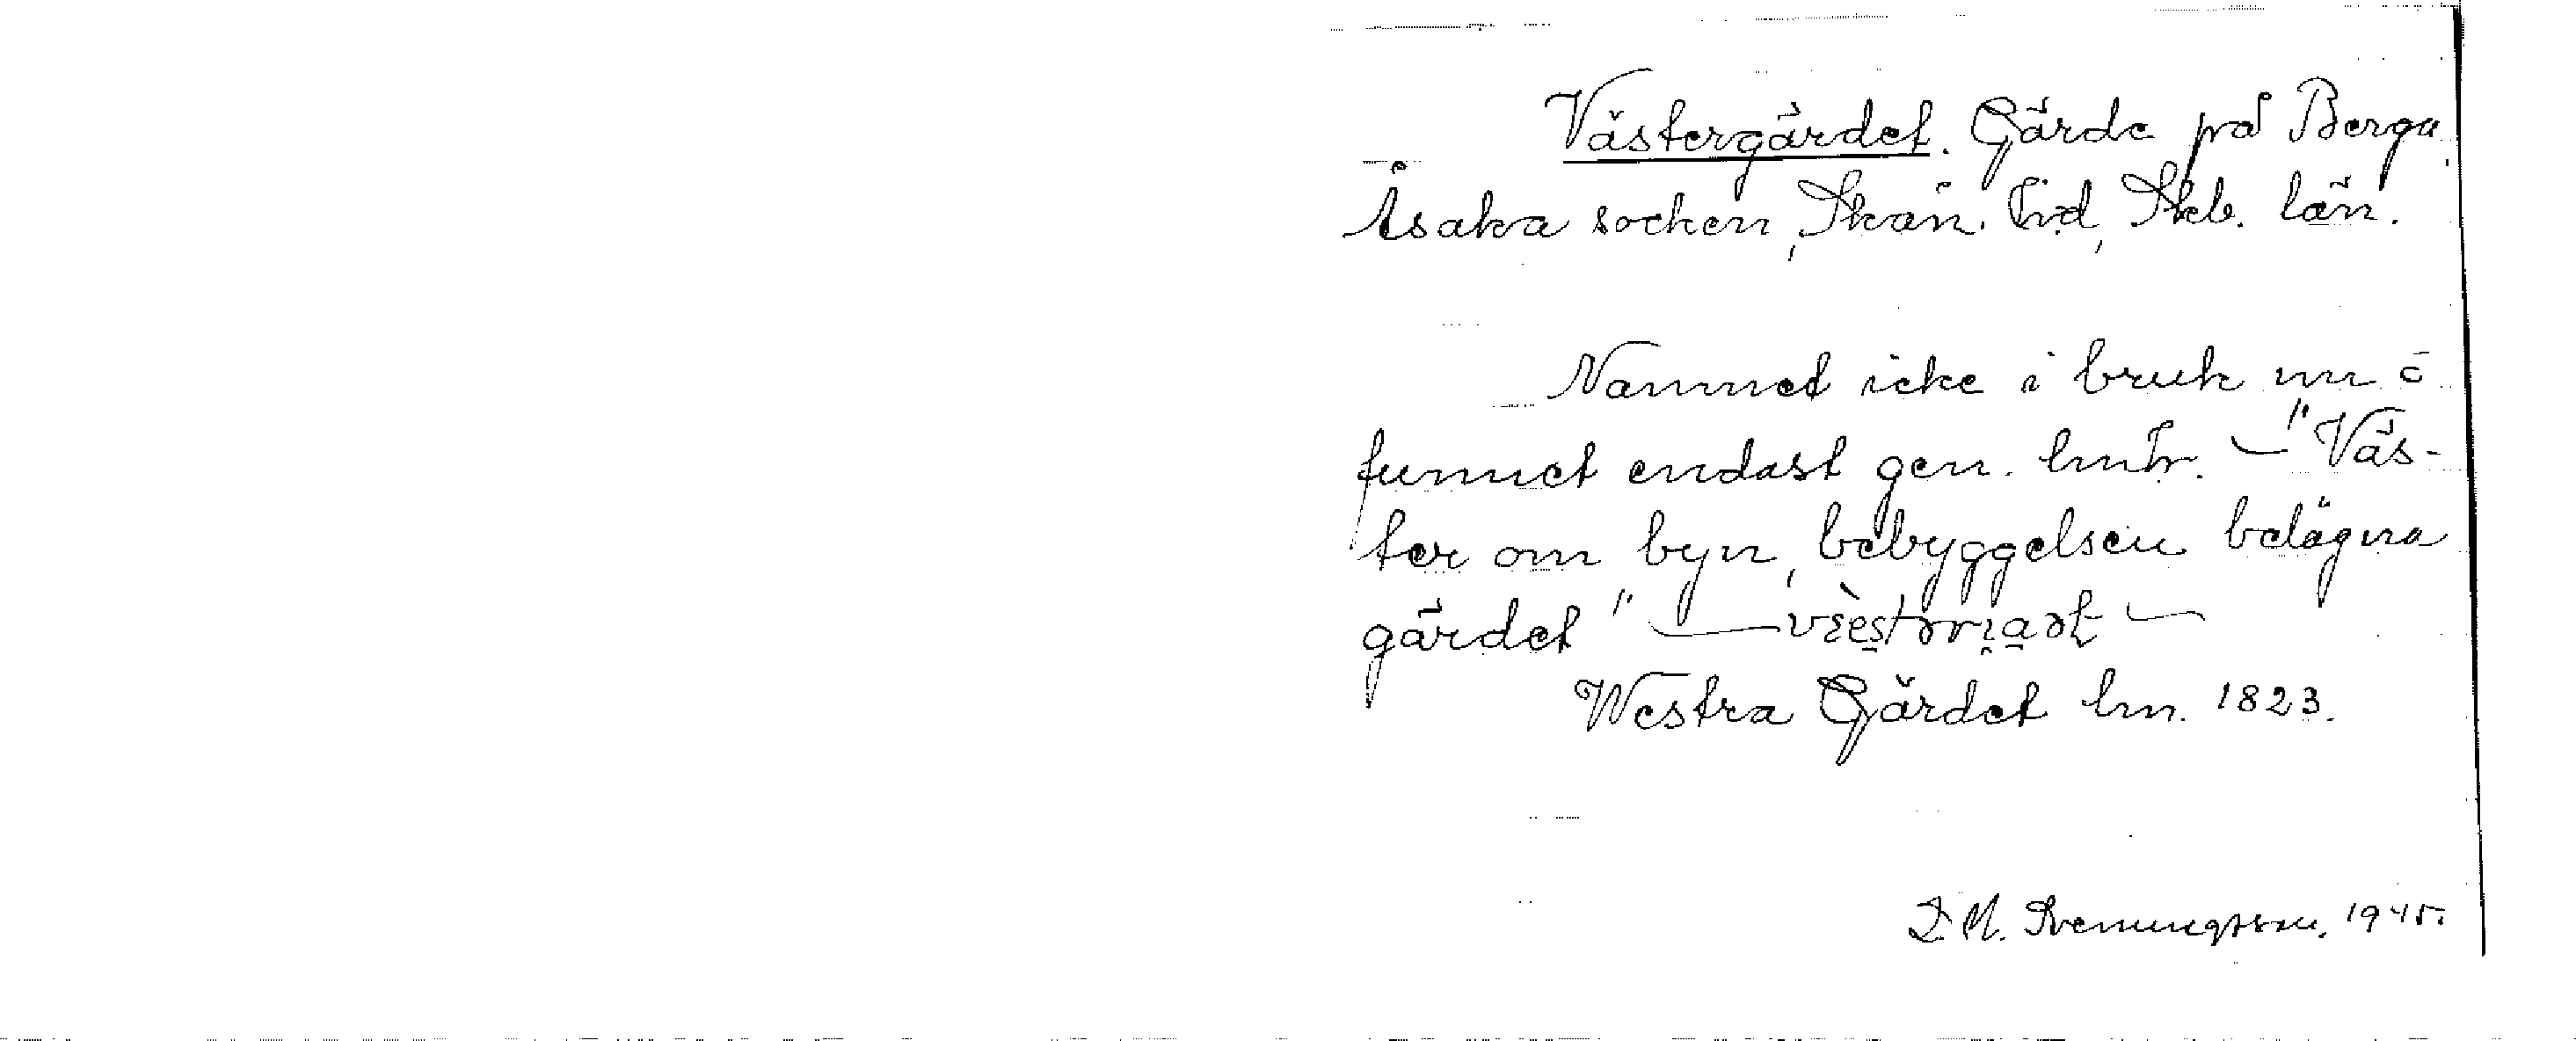 Västergärdet. Gärde på Berga
Åsaka socken, Skån. hd, Skb. län.
Namnet icke i bruk nu o
funnet endast gen. lmh. — "Väs-
ter om byn, bebyggelsen belägna
gärdet" —
Westra Gärdet lm. 1823.
D. A. Svenungsson. 1945.